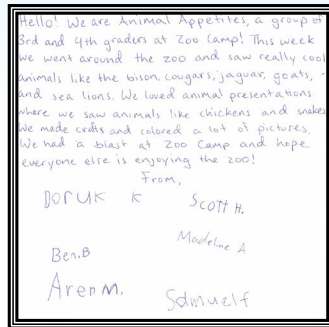 Hello! We are Animal Appetites, a group of
3rd and 4th graders at Zoo Camp! This week
we went around the zoo and saw really cool
animals like the bison, cougars, jaguar, goats,
and sea lions. We loved animal presentations
where we saw animals like chickens and snakes.
We made crafts and colored a lot of pictures.
We had a blast at Zoo Camp and hope
everyone else is enjoying the zoo!
From,
Doruk K
Scott H.
Madeline A
Ben.B
Aren M.
Samuel f